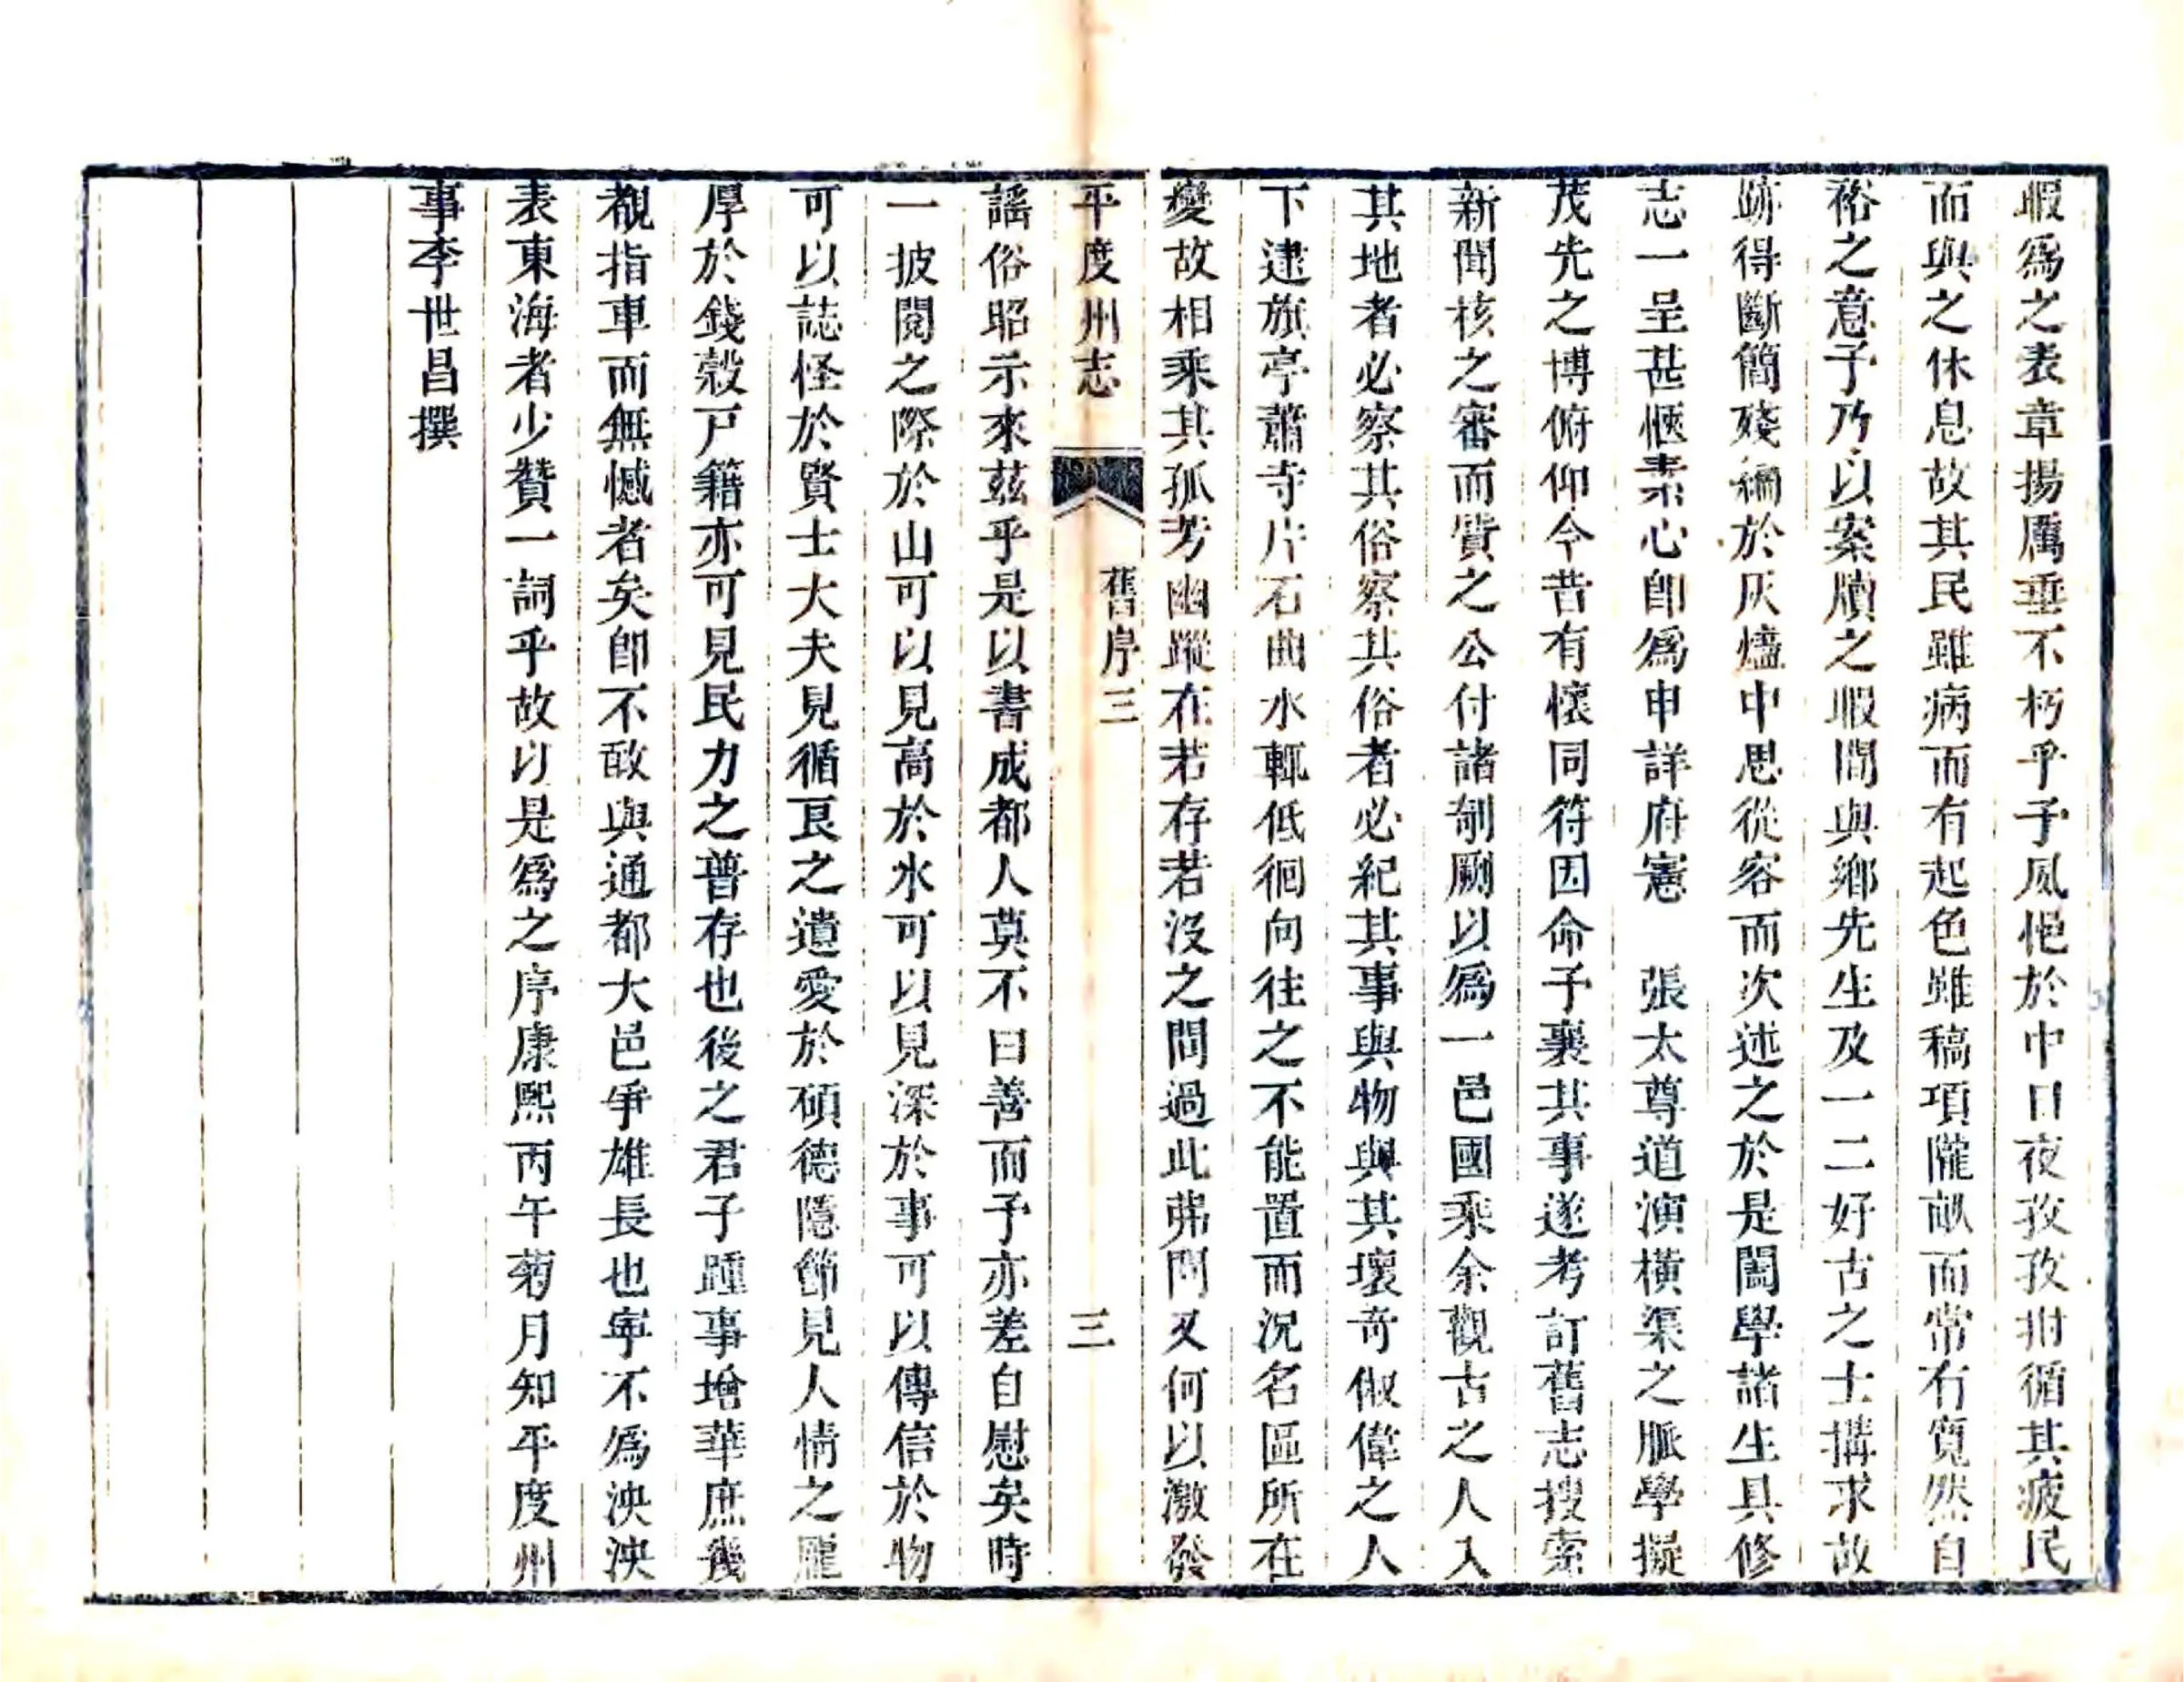 暇爲之表章揚厲垂不朽乎予夙悒於中日夜孜孜拊循其疲民
而與之休息故其民雖病而有起色雖稿項隴畝而常有寬然自
裕之意予乃以案牘之暇間與鄉先生及一二好古之士搆求故
跡得斷簡殘編於灰燼中思從容而次述之於是闔學諸生具修
志一呈甚愜素心卽爲申詳府憲　張太尊道演橫渠之脈學擬
茂先之博俯仰今昔有懷同符因命予襄其事遂考訂舊志搜索
新聞核之審而質之公付諸剞劂以爲一邑國乘余觀古之人入
其地者必察其俗察其俗者必紀其事與物與其壞奇俶偉之人
下逮旗亭蕭寺片石曲水輒低徊向往之不能置而況名區所在
變故相乘其孤芳幽蹤在若存若沒之間過此弗問又何以激發
平度州志　舊序三　三
謡俗昭示來茲乎是以書成都人莫不曰善而予亦差自慰矣時
一披閱之際於山可以見高於水可以見深於事可以傳信於物
可以誌怪於賢士大夫見循良之遺愛於碩德隱節見人情之龎
厚於錢穀戸籍亦可見民力之普存也後之君子踵事增華庶幾
覩指車而無憾者矣卽不敢與通都大邑爭雄長也寧不爲泱泱
表東海者少贊一詞乎故以是爲之序康熙丙午菊月知平度州
事李世昌撰